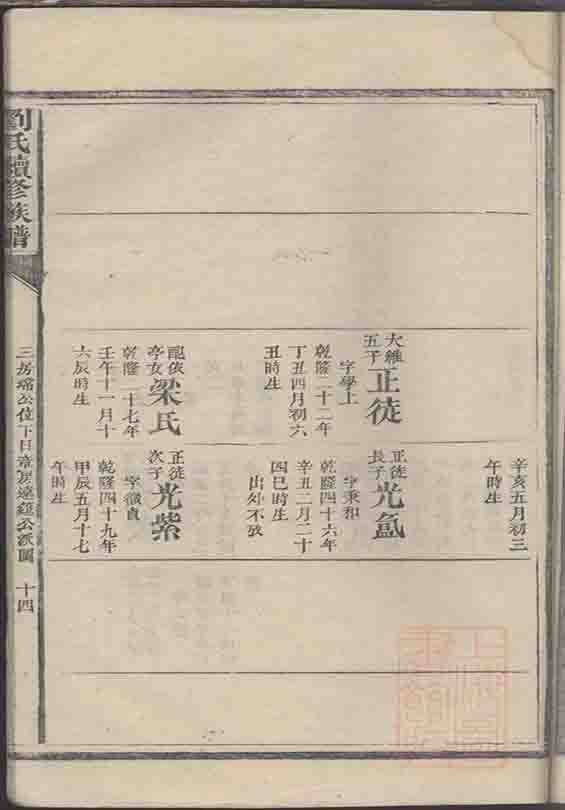 大維
五子
正徒
字學上
乾隆二十二年
丁丑四月初六
丑時生
配依
亭女
梁氏
乾隆二十七年
壬午十一月十
六辰時生
辛亥五月初三
午時生
正徒
長子
光氲
字秉和
乾隆四十六年
辛丑二月二十
四巳時生
出处不攷
正徒
次子
光紫
字嶺貞
乾隆四十九年
甲辰五月十七
午時生
劉氏續修族譜
三房瑞公位下日章房遠
十四